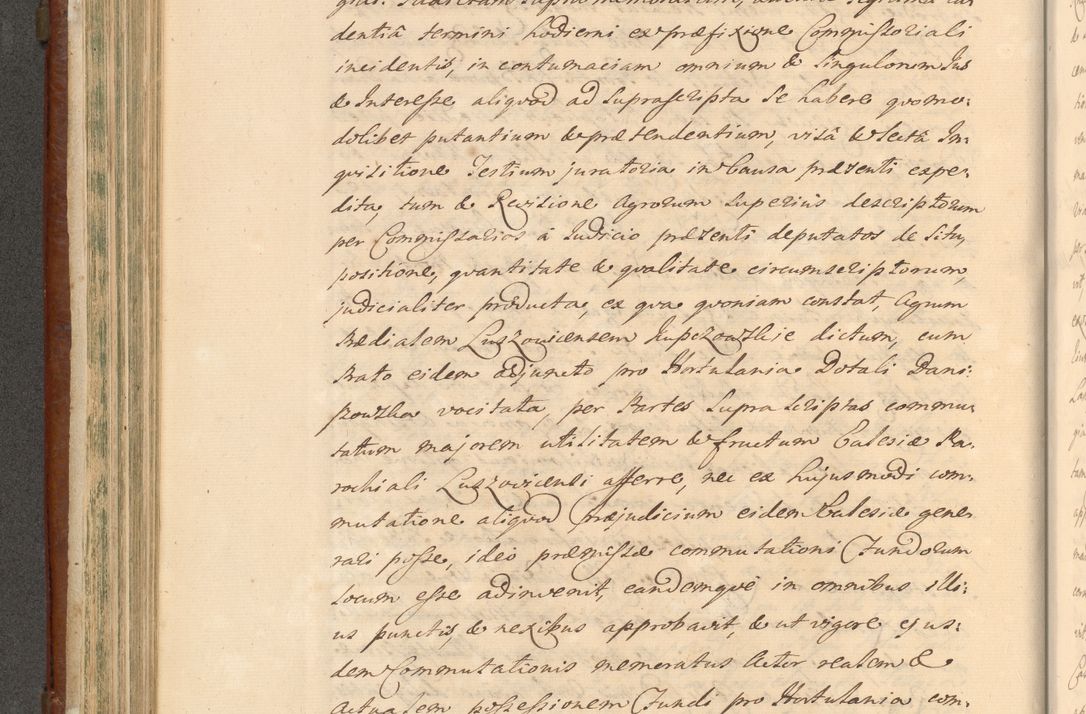 dentiâ termini hodierni ex præfixione Commissoriali
incidentis, in contumaciam omnium & Singulorum Jus
& Interesse aliquod ad Suprascripta Se habere quomo:
dolibet putantium & prætendentium, visâ & lectâ In:
quisitione Testium juratoria in Causa præsenti expe:
dita, tum & Revisione Agrorum Superius descriptorum
per Commissarios à Judicio præsenti deputatos de Situ,
positione, quantitate & qualitate circumscriptorum,
judicialiter producta, ex qua quoniam constat, Agrum
Prædialem Luszovicensem Kupczowskie dictum, cum
Prato eidem adjuncto pro Hortulania Dotali Dani:
kowska vocitata, per Partes Supra Scriptas commu:
tatum majorem utilitatem & fructum Ecclesiæ Pa:
rochiali Luszovicensi afferre, nec ex hujusmodi com:
mutatione aliquod præjudicium eidem Ecclesiæ gene:
rari posse, ideo præmissæ commutationi Fundorum
locum esse adinvenit, eandemque in omnibus illi:
us punctis, & nexibus approbavit, & ut vigore ejus:
dem Commutationis memoratus Actor realem &
Actualem possessionem Fundi pro Hortulania com: